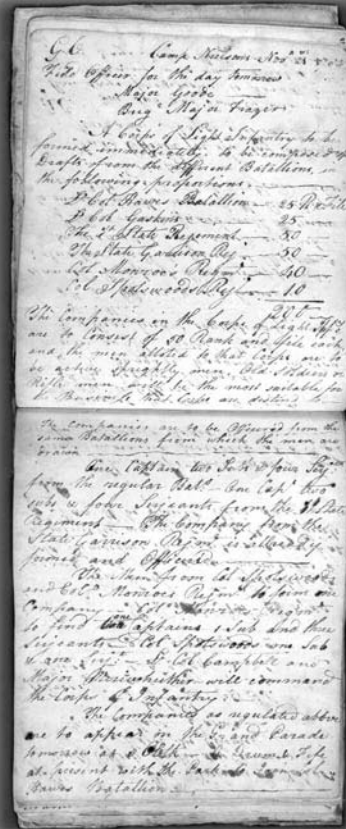 G.O. Camp Nielson Nov.r 21 1780
Field Officer for the day tomorrow
Major Goode
Brig.e Major Frazier
A Corps of Light Infantry to be
formed immediately to be composed of
Drafts from the different Batallions, in
the following proportions.
Lt Col. Hawes Batallion 25 R & File
Lt Col. Gaskins 25
The 2d State Regiment 50
The State Garrison Reg.t 50
Col. Monroe's Regm.t 40
Col. Spotswoods Reg.t 10
200
The Companies in the Corps of Light Inf.y
are to Consist of 50 Rank and file each
and the men alloted to that Corps are to
be active sprightly men, Old Soldiers or
Rifle men will be the most suitable for
the Business that Corps are destined to
The Companies are to be Officered from the
same Batallions from which the men are
drawn
One Captain two Subs & four Serj.ts
from the regular Bat.s One Cap.t two
subs & four Serjeants from the 2d State
Regiment The Company from the
State Garrison Regm.t is allready
formed and Officered
The Men from Col. Spotswoods
and Col. Monroes Regm.t to form one
Company Col. Monroe's Regm.t
to find Captains, Sub and three
Serjeants Col. Spotswoods one Sub
& one Serj.t Lt Col. Campbell and
Major will command
the Corps of Infantry
The Companies as regulated above
are to appear on the Grand Parade
tomorrow at Drum & Fife
at present with the
Hawes Batallion